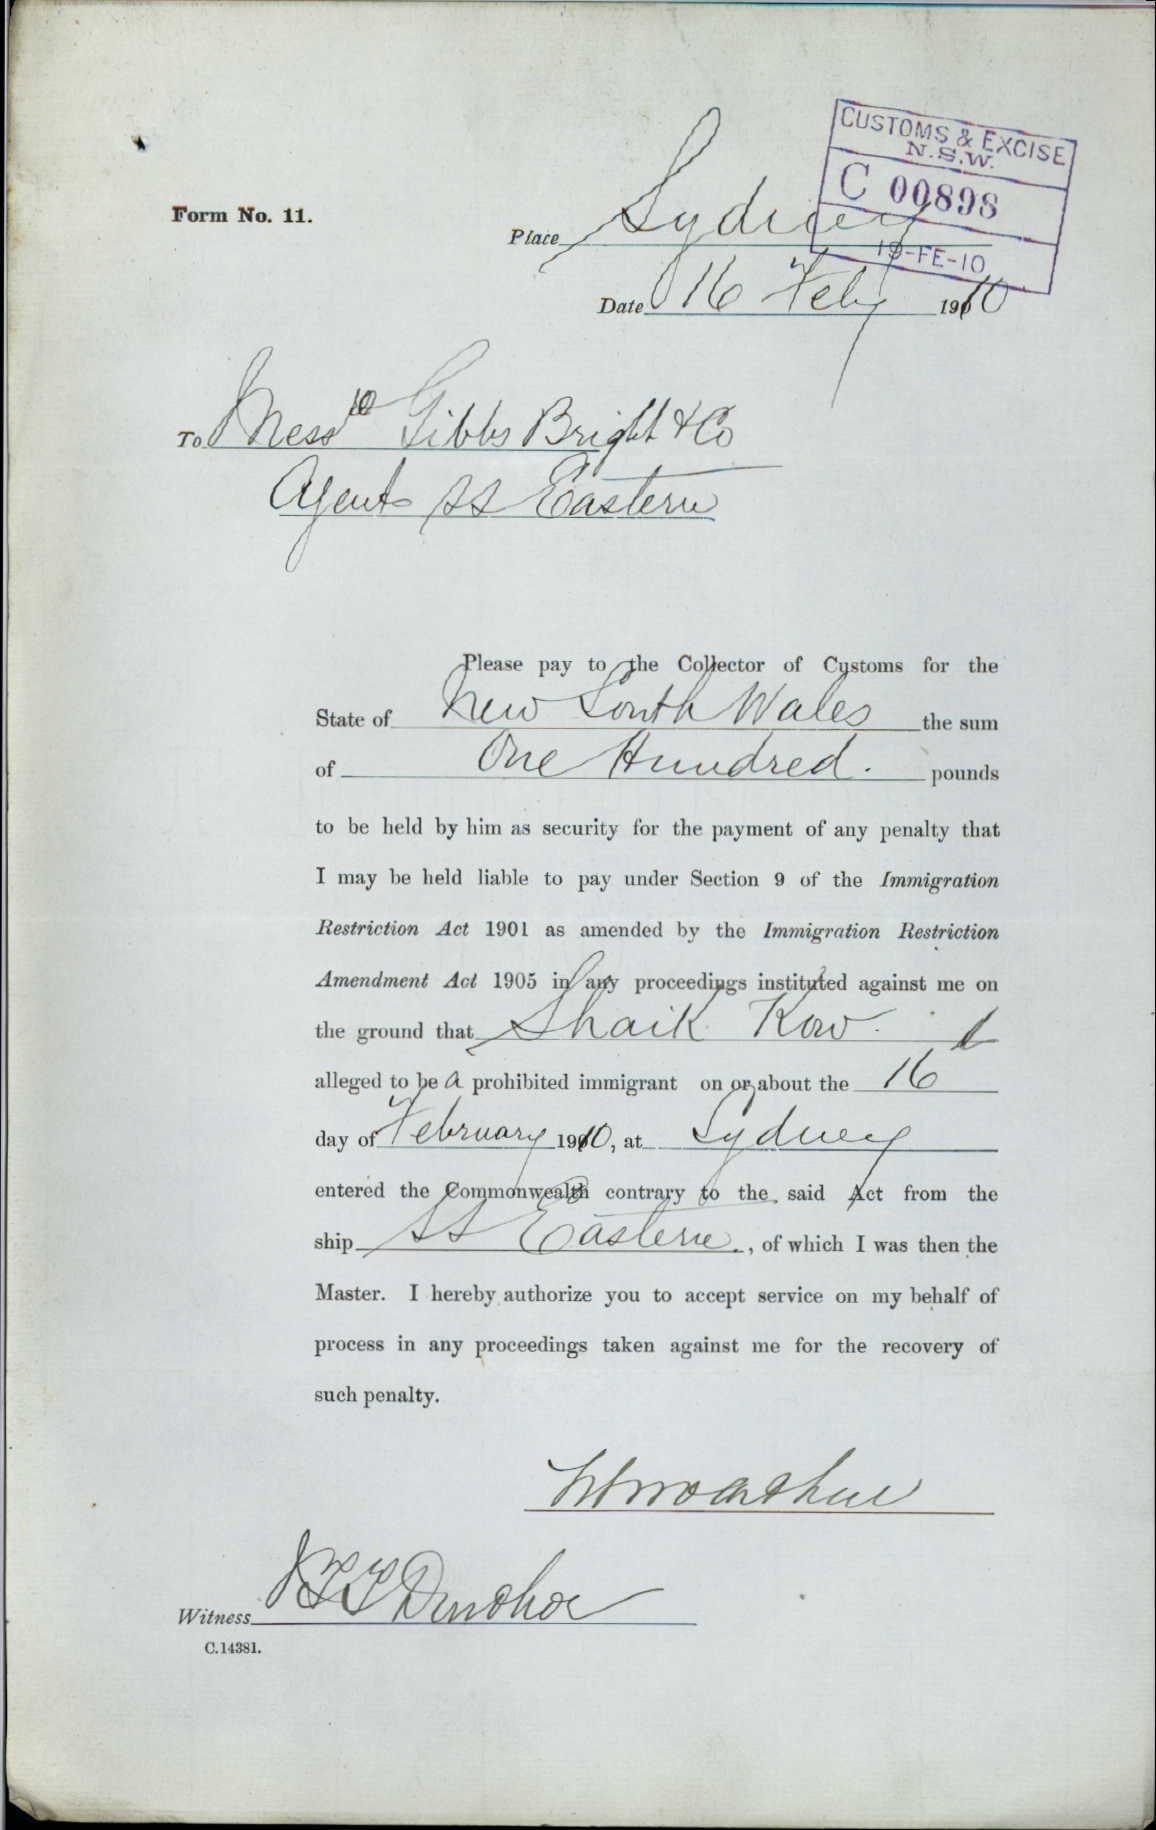 CUSTOMS & EXCISE
N.S.W.
C 00898
19-FE-10
Form No. 11.
Place Sydney
Date 16 Feby 1910
To Messrs Gibbs Bright & Co
Agents SS Eastern
Please pay to the Collector of Customs for the
State of New South Wales the sum
of One Hundred. pounds
to be held by him as security for the payment of any penalty that
I may be held liable to pay under Section 9 of the Immigration
Restriction Act 1901 as amended by the Immigration Restriction
Amendment Act 1905 in any proceedings instituted against me on
the ground that Shaik Kow.
alleged to be a prohibited immigrant on or about the 16
day of February 1910, at Sydney
entered the Commonwealth contrary to the said Act from the
ship SS Eastern., of which I was then the
Master. I hereby authorize you to accept service on my behalf of
process in any proceedings taken against me for the recovery of
such penalty.
Witness Donohoe
C.14381.